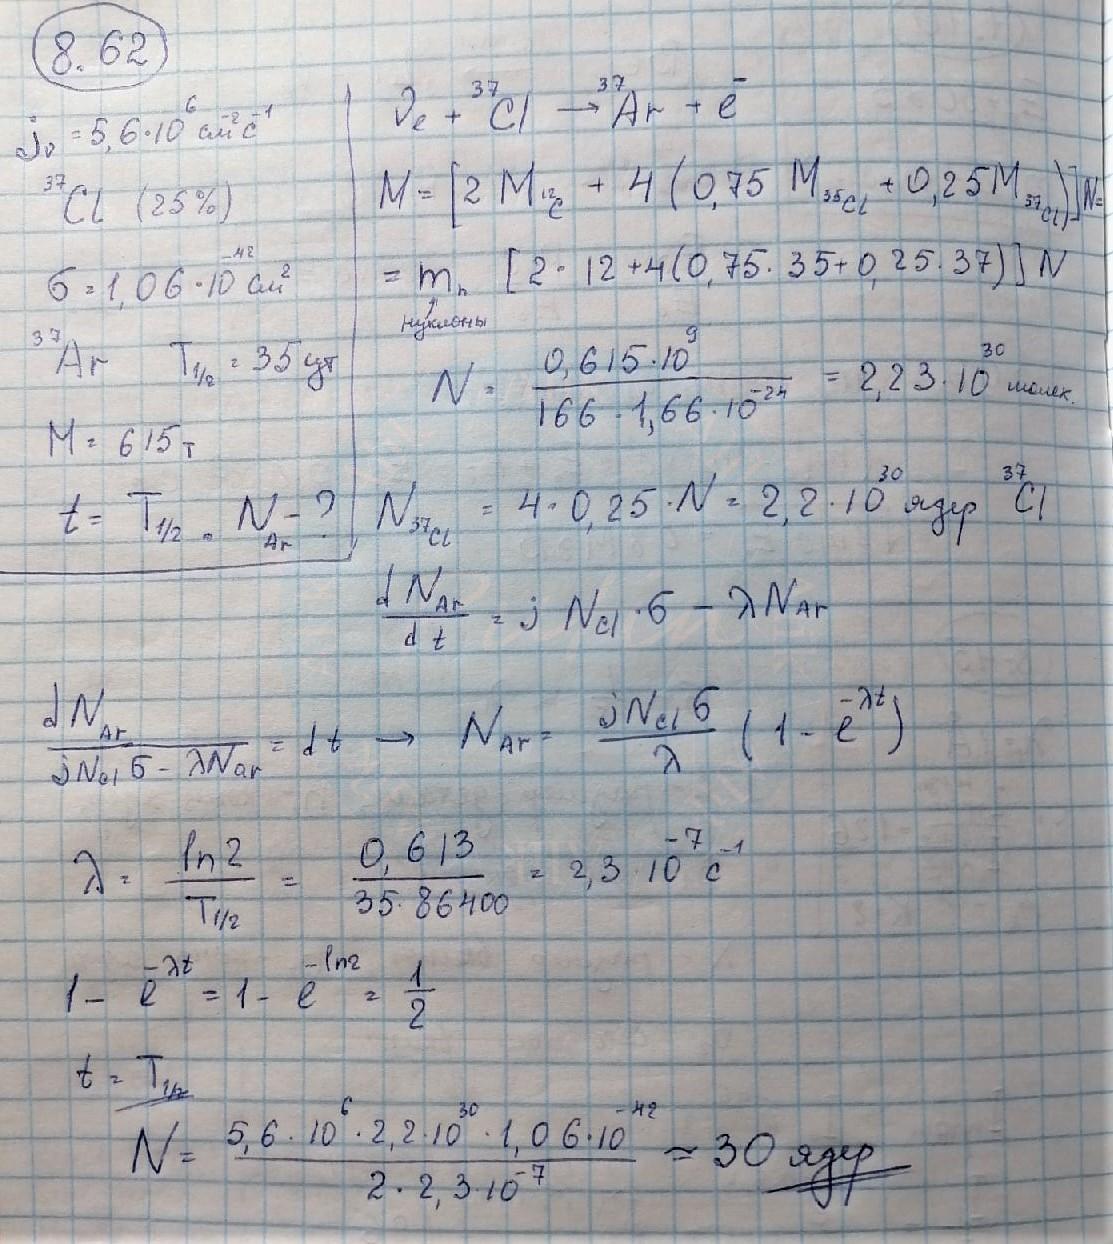 8.62
j_ν = 5,6·10⁶ см⁻² с⁻¹
³⁷Cl (25%)
σ = 1,06·10⁻⁴² см²
³⁷Ar T_{1/2} = 35 сут
M = 615 т
t = T_{1/2}. N_{Ar} - ?
ν_e + ³⁷Cl → ³⁷Ar + e⁻
M = [2 M_{¹²C} + 4 (0,75 M_{³⁵Cl} + 0,25 M_{³⁷Cl})] N =
= m_n [2·12 + 4(0,75·35 + 0,25·37)] N
нуклоны
N = \frac{0,615·10⁹}{166·1,66·10⁻²⁴} = 2,23·10³⁰ молек.
N_{³⁷Cl} = 4·0,25·N = 2,2·10³⁰ ядер ³⁷Cl
\frac{dN_{Ar}}{dt} = j N_{Cl}·σ - λN_{Ar}
\frac{dN_{Ar}}{jN_{Cl}σ - λN_{ar}} = dt → N_{Ar} = \frac{jN_{Cl}σ}{λ} (1 - e^{-λt})
λ = \frac{ln2}{T_{1/2}} = \frac{0,613}{35·86400} = 2,3·10⁻⁷ с⁻¹
1 - e^{-λt} = 1 - e^{-ln2} = \frac{1}{2}
t = T_{1/2}
N = \frac{5,6·10⁶·2,2·10³⁰·1,06·10⁻⁴²}{2·2,3·10⁻⁷} ≈ 30 ядер